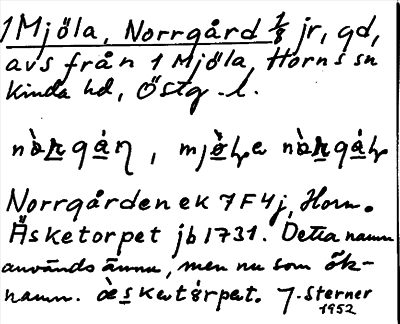 1 Mjöla, Norrgård 1/8 jr, gd,
avs från 1 Mjöla, Horns sn
Kinda hd, Östg. l.
Norrgården ek 7F4j, Horn.
Äsketorpet jb 1731. Detta namn
används ännu, men nu som ök-
namn. J. Sterner
1952